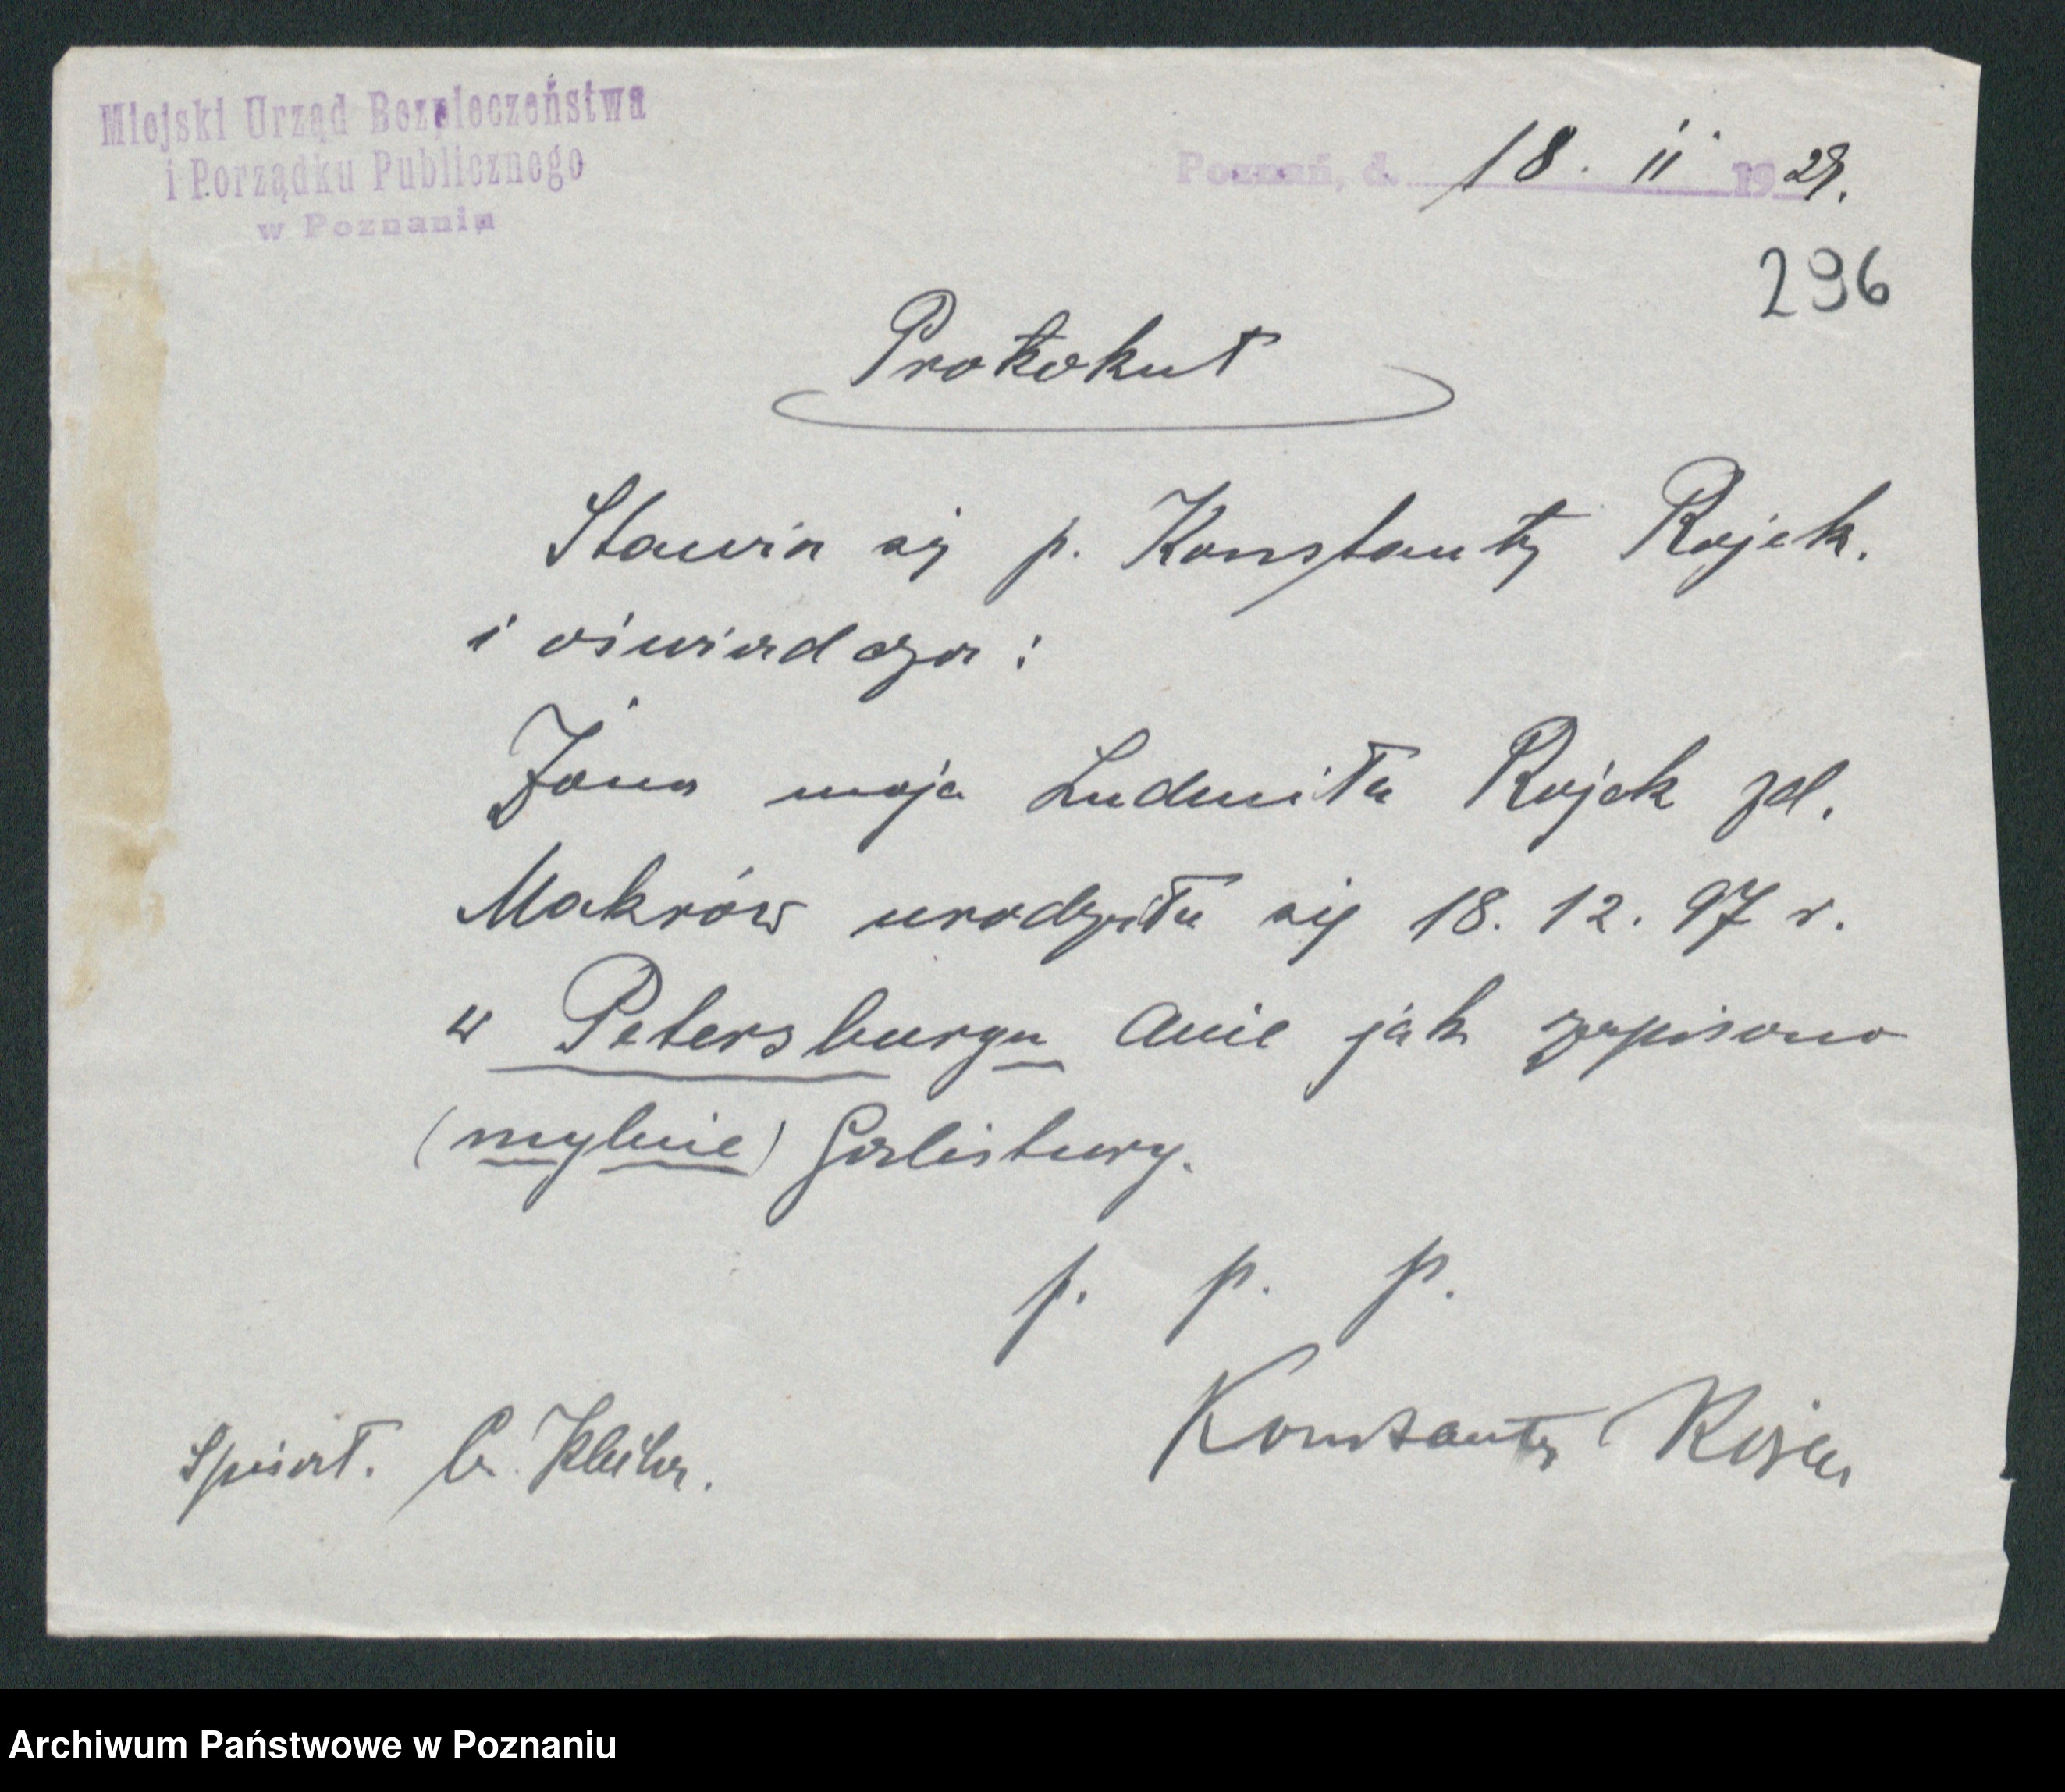 Miejski Urząd Bezpieczeństwa
i Porządku Publicznego
w Poznaniu
Poznań, d. 18. II 1928.
296
Protokuł
Stawia się p. Konstanty Rojek.
i oświadcza:
Żona moja Ludmiła Rojek zd.
Makrów urodziła się 18. 12. 97 r.
w Petersburgu anie jak zapisano
(mylnie)
p. p. p.
Konstanty Rojek
Spisał.
Archiwum Państwowe w Poznaniu